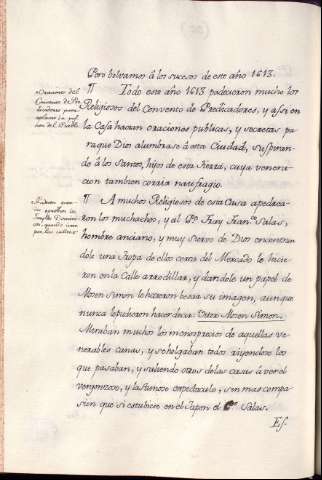 Pero bolvamos á los sucesos de este año 1613.
Oraciones del
Convento de Pre
dicadores para
¶ Todo este año 1613 padecieron mucho los
Religiosos del Convento de Predicadores, y assi en
la Casa hacian oraciones publicas, y secretas pa
ra que Dios alumbrase á esta Ciudad, suspiran
do á los Santos, hijos de esta Tierra, cuya venera
cion tambien corria naufragio.
¶ A muchos Religiosos de esta Casa apedrea
ron los muchachos, y al Pe. Fray Franco. Salas,
hombre anciano, y muy siervo de Dios encontran
dole una tropa de ellos cerca del Mercado le hicie
ron en la Calle arrodillar, y dandole un papel de
Mosen Simon le hicieron besar su imagen, aunque
nunca le pudieron hacer decir: Vitor Mosen Simon.
Miraban muchos los menosprecios de aquellas ve
nerables canas, y se holgaban todos riyendose los
que pasaban, y saliendo otros de las casas á ver el
vergonzoso, y lastimoso espectaculo, sin mas compa
sion que si estubiese en el Japon el Pe. Salas.
Es-